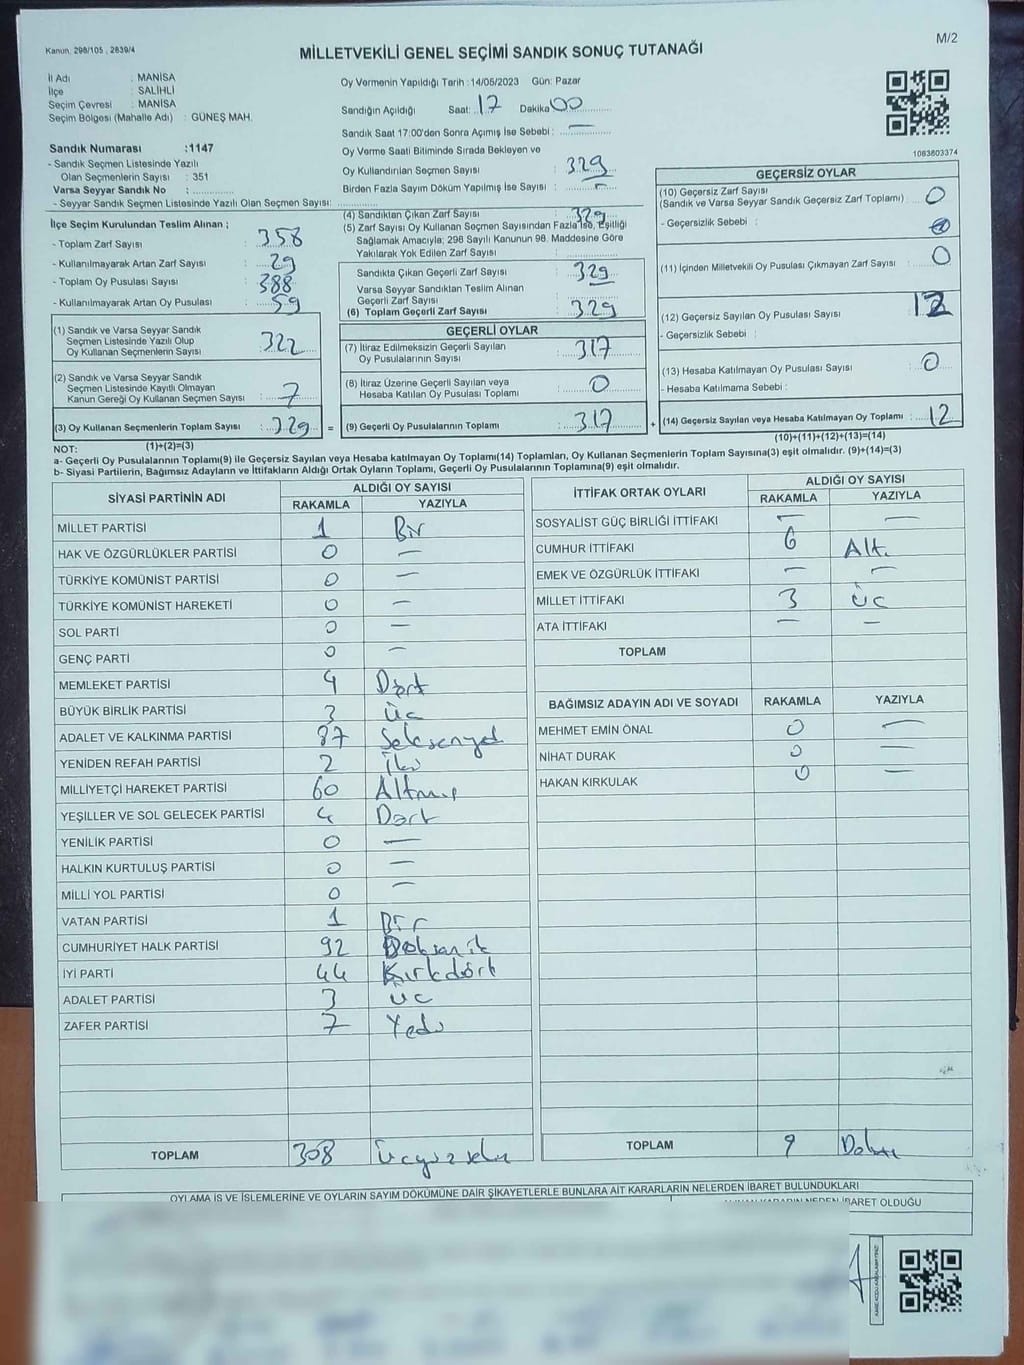 Kanun, 298/105 , 2839/4
M/2
MİLLETVEKİLİ GENEL SEÇİMİ SANDIK SONUÇ TUTANAĞI
İl Adı : MANİSA
İlçe : SALİHLİ
Seçim Çevresi : MANİSA
Seçim Bölgesi (Mahalle Adı) : GÜNEŞ MAH.
Oy Vermenin Yapıldığı Tarih : 14/05/2023 Gün: Pazar
Sandığın Açıldığı Saat: 17 Dakika 00
Sandık Saat 17:00'den Sonra Açımış İse Sebebi : —
Sandık Numarası :1147
- Sandık Seçmen Listesinde Yazılı
Olan Seçmenlerin Sayısı : 351
Varsa Seyyar Sandık No :
- Seyyar Sandık Seçmen Listesinde Yazılı Olan Seçmen Sayısı:
Oy Verme Saati Bitiminde Sırada Bekleyen ve
Oy Kullandırılan Seçmen Sayısı : 329
Birden Fazla Sayım Döküm Yapılmış İse Sayısı : –
1083603374
İlçe Seçim Kurulundan Teslim Alınan ;
- Toplam Zarf Sayısı : 358
- Kullanılmayarak Artan Zarf Sayısı : 29
- Toplam Oy Pusulası Sayısı : 388
- Kullanılmayarak Artan Oy Pusulası : 59
(1) Sandık ve Varsa Seyyar Sandık
Seçmen Listesinde Yazılı Olup
Oy Kullanan Seçmenlerin Sayısı : 322
(2) Sandık ve Varsa Seyyar Sandık
Seçmen Listesinde Kayıtlı Olmayan
Kanun Gereği Oy Kullanan Seçmen Sayısı : 7
(3) Oy Kullanan Seçmenlerin Toplam Sayısı : 329 =
(4) Sandıktan Çıkan Zarf Sayısı : 329
(5) Zarf Sayısı Oy Kullanan Seçmen Sayısından Fazla İse, Eşitliği
Sağlamak Amacıyla; 298 Sayılı Kanunun 98. Maddesine Göre
Yakılarak Yok Edilen Zarf Sayısı :
Sandıkta Çıkan Geçerli Zarf Sayısı : 329
Varsa Seyyar Sandıktan Teslim Alınan
Geçerli Zarf Sayısı :
(6) Toplam Geçerli Zarf Sayısı : 329
GEÇERLİ OYLAR
(7) İtiraz Edilmeksizin Geçerli Sayılan
Oy Pusulalarının Sayısı : 317
(8) İtiraz Üzerine Geçerli Sayılan veya
Hesaba Katılan Oy Pusulası Toplamı : 0
(9) Geçerli Oy Pusulalarının Toplamı : 317 +
GEÇERSİZ OYLAR
(10) Geçersiz Zarf Sayısı
(Sandık ve Varsa Seyyar Sandık Geçersiz Zarf Toplamı) : 0
- Geçersizlik Sebebi :
(11) İçinden Milletvekili Oy Pusulası Çıkmayan Zarf Sayısı : 0
(12) Geçersiz Sayılan Oy Pusulası Sayısı : 12
- Geçersizlik Sebebi :
(13) Hesaba Katılmayan Oy Pusulası Sayısı : 0
- Hesaba Katılmama Sebebi :
(14) Geçersiz Sayılan veya Hesaba Katılmayan Oy Toplamı : 12
NOT: (1)+(2)=(3) (10)+(11)+(12)+(13)=(14)
a- Geçerli Oy Pusulalarının Toplamı(9) ile Geçersiz Sayılan veya Hesaba katılmayan Oy Toplamı(14) Toplamları, Oy Kullanan Seçmenlerin Toplam Sayısına(3) eşit olmalıdır. (9)+(14)=(3)
b- Siyasi Partilerin, Bağımsız Adayların ve İttifakların Aldığı Ortak Oyların Toplamı, Geçerli Oy Pusulalarının Toplamına(9) eşit olmalıdır.
SİYASİ PARTİNİN ADI ALDIĞI OY SAYISI
RAKAMLA YAZIYLA
MİLLET PARTİSİ 1 Bir
HAK VE ÖZGÜRLÜKLER PARTİSİ 0 —
TÜRKİYE KOMÜNİST PARTİSİ 0 —
TÜRKİYE KOMÜNİST HAREKETİ 0 —
SOL PARTİ 0 —
GENÇ PARTİ 0 —
MEMLEKET PARTİSİ 4 Dört
BÜYÜK BİRLİK PARTİSİ 3 Üç
ADALET VE KALKINMA PARTİSİ 87 Seksenyedi
YENİDEN REFAH PARTİSİ 2 İki
MİLLİYETÇİ HAREKET PARTİSİ 60 Altmış
YEŞİLLER VE SOL GELECEK PARTİSİ 4 Dört
YENİLİK PARTİSİ 0 —
HALKIN KURTULUŞ PARTİSİ 0 —
MİLLİ YOL PARTİSİ 0 —
VATAN PARTİSİ 1 Bir
CUMHURİYET HALK PARTİSİ 92 Doksaniki
İYİ PARTİ 44 Kırkdört
ADALET PARTİSİ 3 Üç
ZAFER PARTİSİ 7 Yedi
TOPLAM 308 Üçyüzsekiz
İTTİFAK ORTAK OYLARI ALDIĞI OY SAYISI
RAKAMLA YAZIYLA
SOSYALİST GÜÇ BİRLİĞİ İTTİFAKI — —
CUMHUR İTTİFAKI 6 Altı
EMEK VE ÖZGÜRLÜK İTTİFAKI — —
MİLLET İTTİFAKI 3 Üç
ATA İTTİFAKI — —
TOPLAM
BAĞIMSIZ ADAYIN ADI VE SOYADI RAKAMLA YAZIYLA
MEHMET EMİN ÖNAL 0 —
NİHAT DURAK 0 —
HAKAN KIRKULAK 0 —
TOPLAM 9 Dokuz
OYLAMA İŞ VE İŞLEMLERİNE VE OYLARIN SAYIM DÖKÜMÜNE DAİR ŞİKAYETLERLE BUNLARA AİT KARARLARIN NELERDEN İBARET BULUNDUKLARI
İBARET OLDUĞU